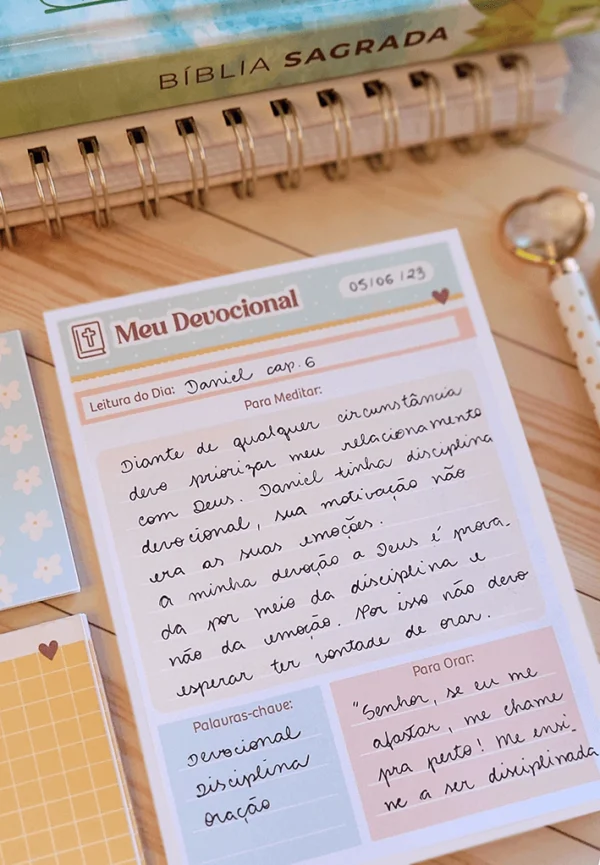 BÍBLIA SAGRADA
Meu Devocional
05/06/23
Leitura do Dia: Daniel cap. 6
Para Meditar:
Diante de qualquer circunstância
devo priorizar meu relacionamento
com Deus. Daniel tinha disciplina
devocional, sua motivação não
era as suas emoções.
A minha devoção a Deus é prova-
da por meio da disciplina e
não da emoção. Por isso não devo
esperar ter vontade de orar.
Palavras-chave:
Devocional
Disciplina
Oração
Para Orar:
"Senhor, se eu me
afastar, me chame
pra perto! Me ensi-
ne a ser disciplinada